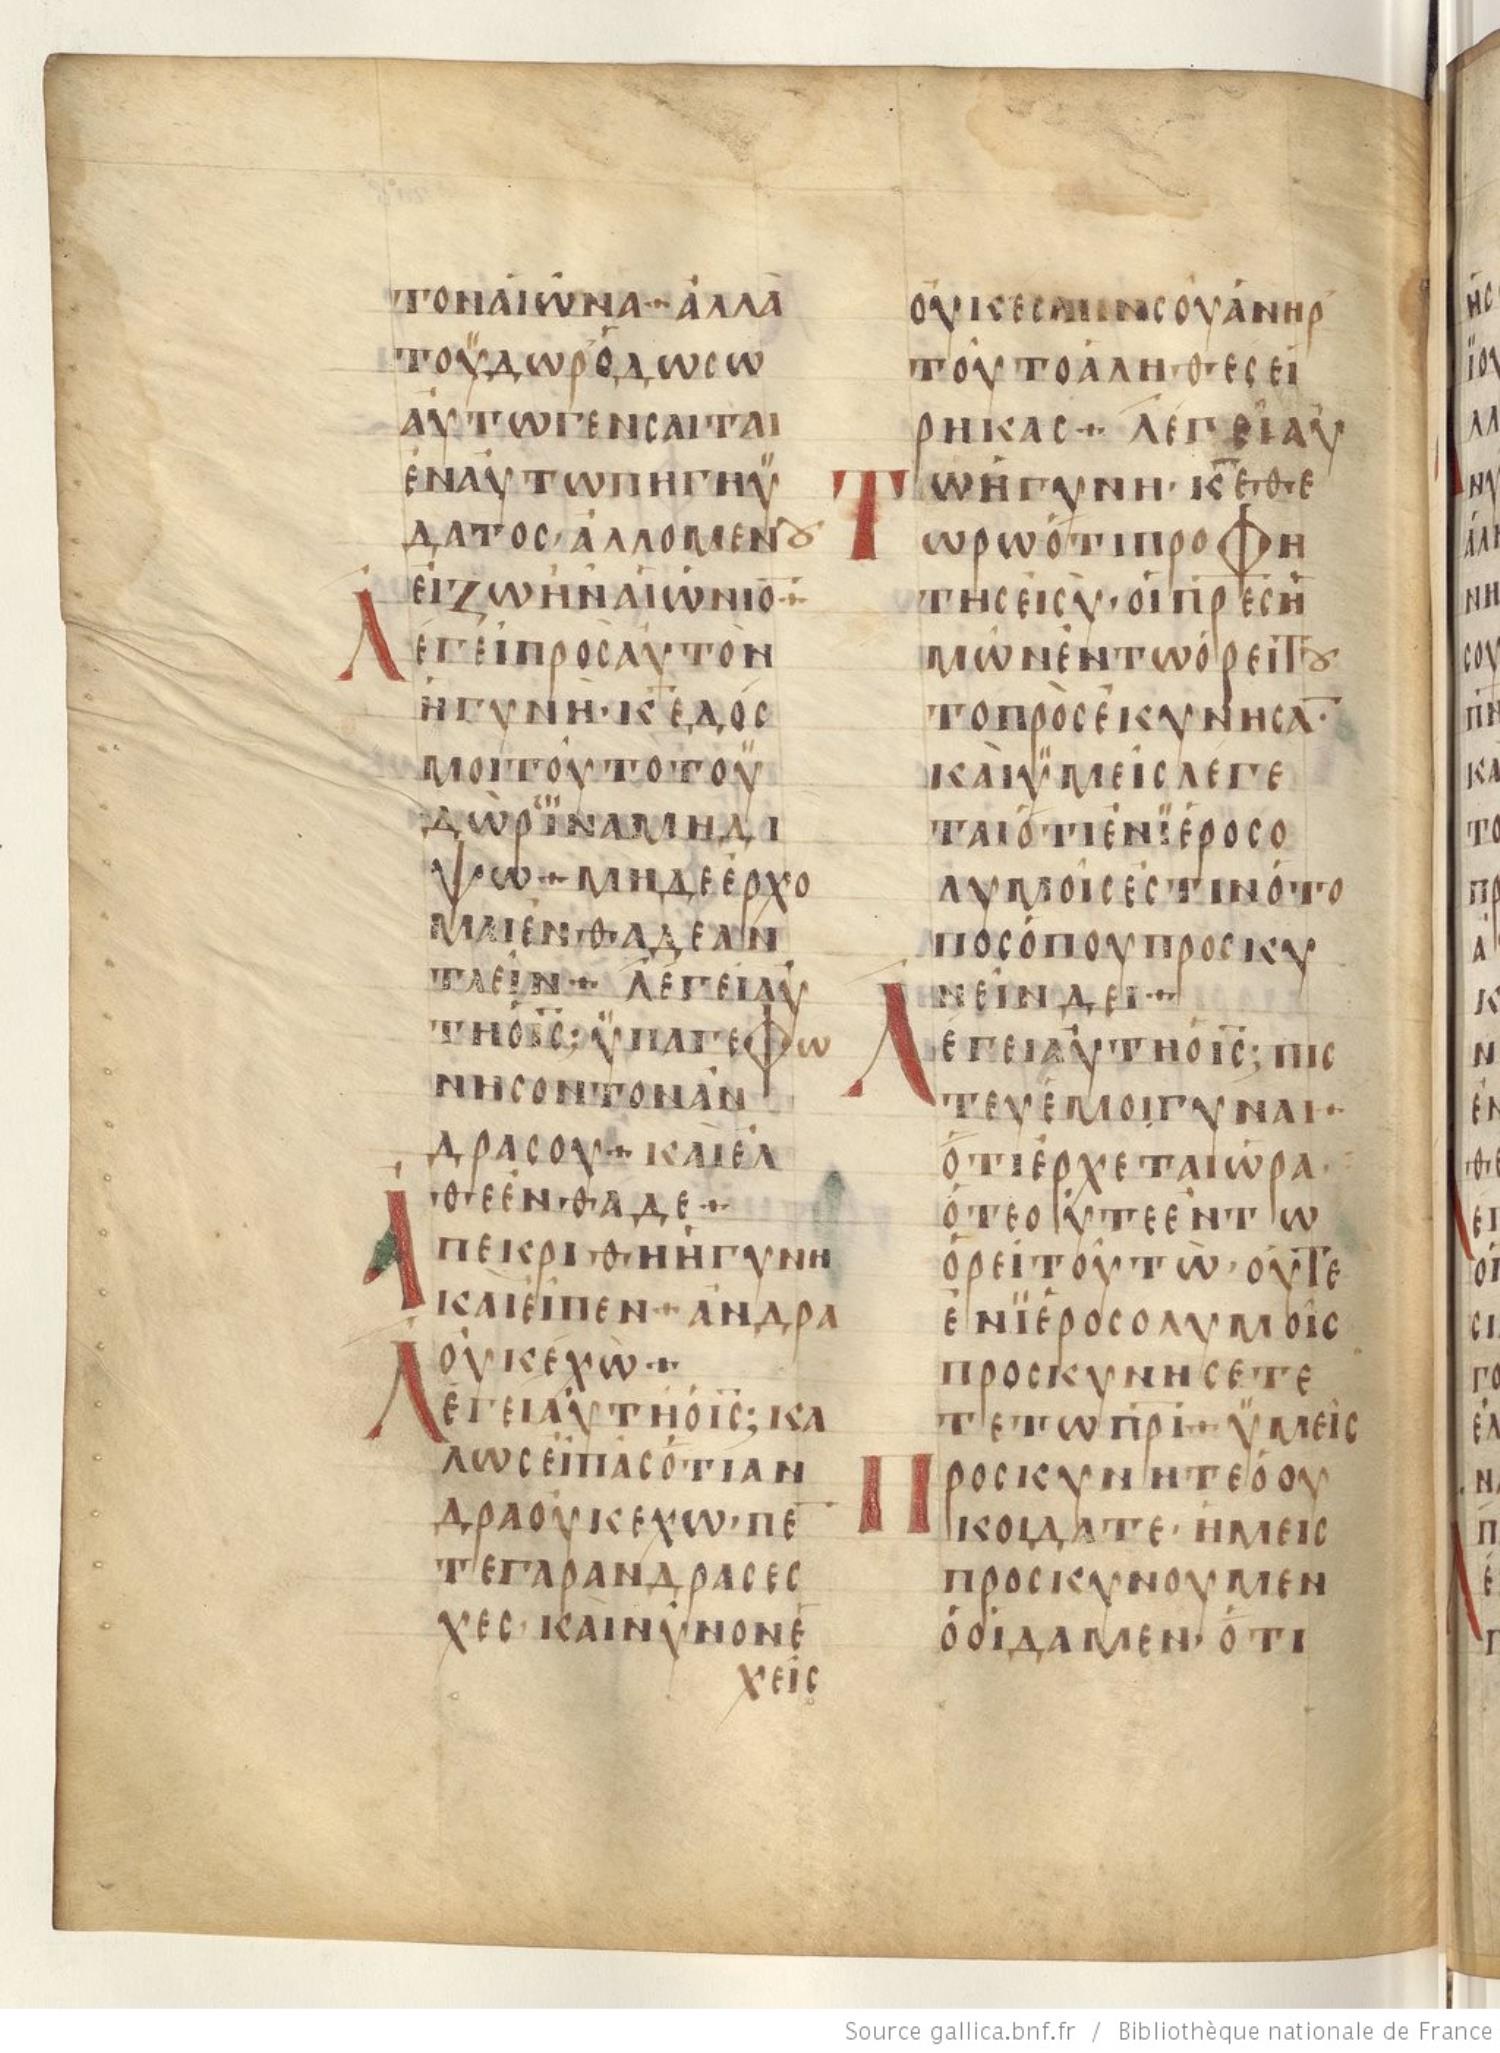 τὸναἰῶνα + ἀλλὰ
τοΰδωρ ὃδώσω
αὐτωγενσαιται
ἐναὐτωπηγηΰ
δατος · ἀλλομενȣ
εἰζωὴναἰώνιο̅ +
Λέγειπρὸςαὐτὸν
ἡγυνή · κ̅ε̅δός
μοιτοῦτοτοΰ
δωρ ἵναμηδι
ψω + μηδεἔρχο
μαιἐνθαδεαν
τλεῖν + λέγειαὐ
τῆὁι̅ς̅ : ὕπαγεφώ
νησοντονάν
δρασου + καὶελ
θεἐνθαδε +
Ἀπεκριθηἡγυνη
καὶεἶπεν + ἄνδρα
οὐκέχω +
Λέγειαὐτῆὁι̅ς̅ : κα
λωςεἶπαςὅτιαν
δραοὐκεχω · πέ̅
τεγαρανδρασες
χες · καὶνῦνονἔ
χεις
οὐκεσ
νσουἀνήρ
τοῦτοἀληθεςεἰ
ρηκας + λέγειαὐ
Τωἡγυνή · κ̅ε̅θε
ωρωὅτιπροφη
τηςεἶσύ · οἱπρ̅ε̅ς̅ἡ
μῶνἐντωὄρειτȣ
τοπρὸςέκυνησα̅ ·
καὶϋμεῖςλέγε
ταιὅτιἐνϊἐροσο
λυμοιςἐστινὁτο
ποςὅπουπροσκυ
νεῖνδει +
Λέγειαὐτῆὁι̅ς̅ : πισ
τευέμοιγυναι +
ὅτιἔρχεταιὥρα ·
ὅτεοὔτεἐντω
ὄρειτοὐτω · οὔτε
ἐνϊἐροσολυμοις
προσκυνησετε
τετωπ̅ρ̅ι̅ + ϋμεῖς
Προσκυνητεὃου
κοιδατε · ἡμεις
προσκυνουμεν
ὃοἴδαμεν · ὅτι
Source gallica.bnf.fr / Bibliothèque nationale de France